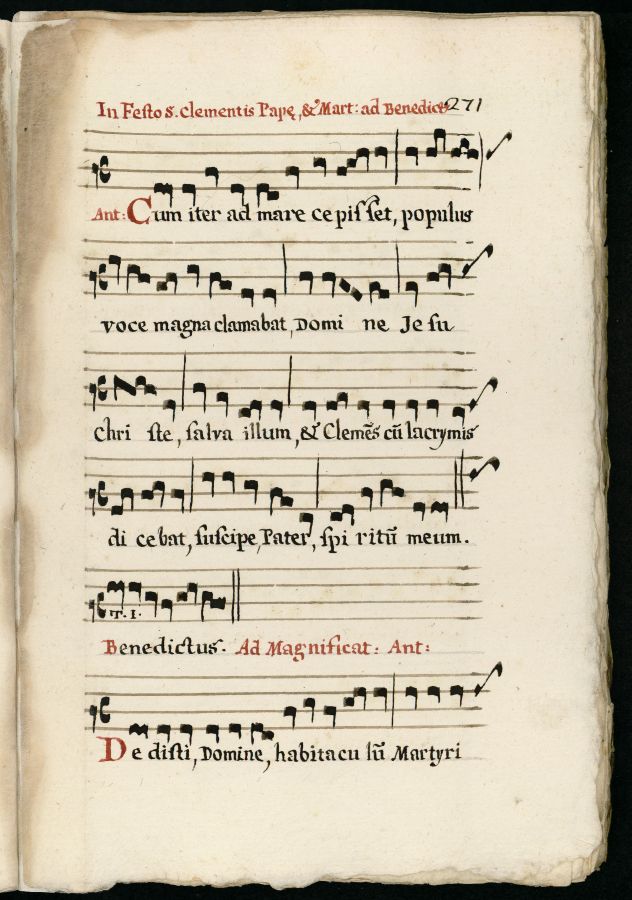 In Festo S. Clementis Papę, & Mart: ad Benedictus 271
Ant: Cum iter ad mare cepisset, populus
voce magna clamabat, Domi ne Jesu
Chri ste, salva illum, & Clemẽs cũ lacrymis
di cebat, suscipe Pater, spi ritũ meum.
T. I.
Benedictus. Ad Magnificat: Ant:
De disti, Domine, habitacu lũ Martyri